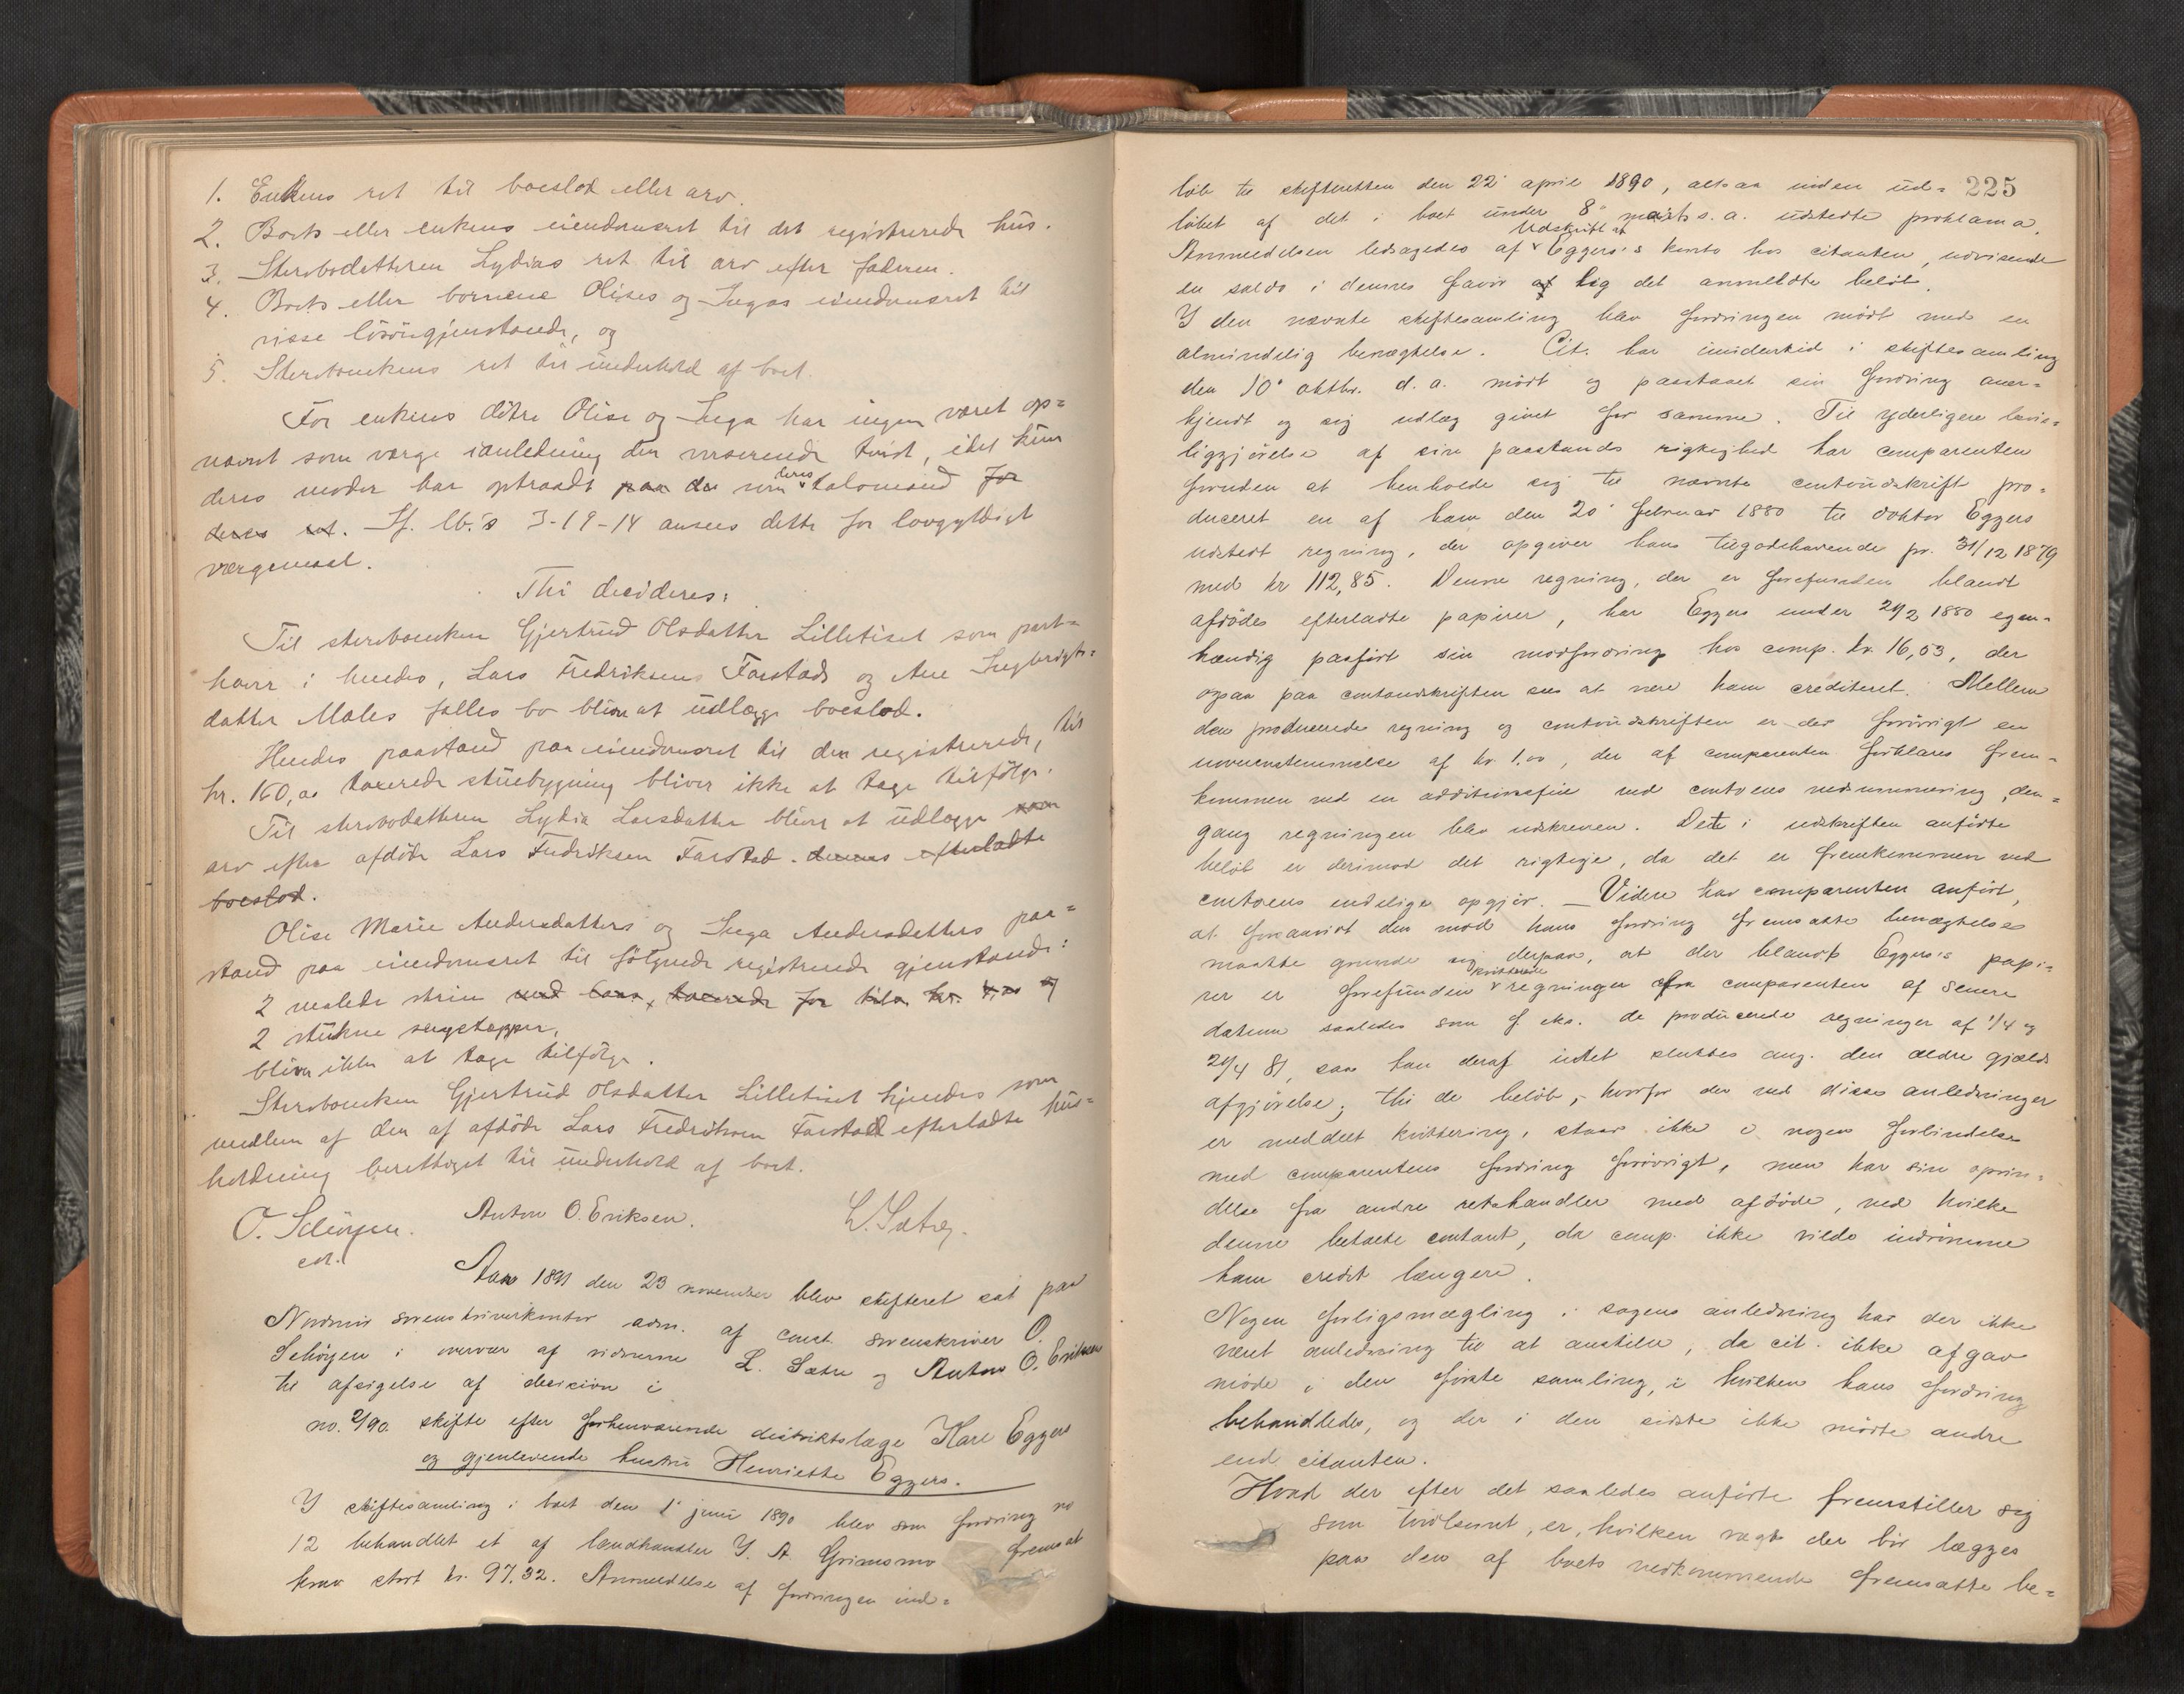 1. Enkens ret til boeslod eller arv.
2. Boets eller enkens eiendomsret til det registrerede hus.
3. Stervbodatteren Lydias ret til arv efter faderen.
4. Boets eller børnene Olises og Ingas eiendomsret til
visse løsøregjenstande, og
5. Stervboenkens ret til underhold af boet.
For enkens døtre Olise og Inga har ingen været op=
nævnt som værge i anledning den verserende tvist, idet kun
deres moder har optraadt paa de som deres talsmand for
deres ret. Jf. lb.'s 3-19-14 ansees dette for lovgyldigt
værgemaal.
Thi decideres:
Til stervboenken Gjertrud Olsdatter Lilletiset som part=
haver i hendes, Lars Fredriksens Farstads og Ane Ingbrigts=
datter Males fælles bo bliver at udlægge boeslod.
Hendes paastand paa eiendomsret til den registrerede, til
kr. 160,00 taxerede stuebygning bliver ikke at tage tilfølge.
Til stervbodatteren Lydia Larsdatter bliver at udlægge som
arv efter afdøde Lars Fredriksen Farstad. dennes efterladte
boeslod.
Olise Marie Andersdatters og Inga Andersdatters paa=
stand paa eiendomsret til følgende registrerede gjenstande:
2 malede skrin med laas, taxerede for tils. kr. og
2 stukne sengetæpper,
bliver ikke at tage tilfølge.
Stervboenken Gjertrud Olsdatter Lilletiset kjendes som
medlem af den af afdøde Lars Fredriksen Farstad efterladte hus=
holdning berettiget til underhold af boet.
O. Schøyen. Anton O. Eriksen. L. Sætre.
cst.
Aar 1891 den 23 november blev skifteret sat paa
Nordmør sorenskriverkontor adm. af const. sorenskriver O.
Schøyen i overvær af vidnerne L. Sætre og Anton O. Eriksen
til afsigelse af decision i
no. 2/90. skifte efter forhenværende distriktslæge Karl Eggers
og gjenlevende hustru Henriette Eggers.
I skiftesamling i boet den 1' juni 1890 blev som fordring no
12 behandlet et af landhandler I. A. Grimsmo fremsat
krav stort kr. 97.32. Anmeldelse af fordringen ind=
225
løb til skifteretten den 22' april 1890, altsaa inden ud=
løbet af det i boet under 8' marts s.a. udstedte proklama.
Anmeldelsen ledsagedes af Udskrift af Eggers's konto hos citanten, udvisende
en saldo i dennes favør af lig det anmeldte beløb.
I den nævnte skiftesamling blev fordringen mødt med en
almindelig benægtelse. Cit. har imidlertid i skiftesamling
den 10' oktbr. d.a. mødt og paastaaet sin fordring aner=
kjendt og sig udlæg givet for samme. Til yderligere bevis=
liggjørelse af sin paastands rigtighed har comparenten
foruden at henholde sig til nævnte contoudskrift pro=
duceret en af ham den 20' februar 1880 til doktor Eggers
udstedt regning, der opgiver hans tilgodehavende pr. 31/12 1879
med kr 112,85. Denne regning, der er forefunden blandt
afdødes efterladte papirer, har Eggers under 24/2 1880 egen=
hændig paaført sin modfordring hos comp. kr. 16,53, der
ogsaa paa contoudskriften sees at være ham crediteret. Mellem
den producerede regning og contoudskriften er der forøvrigt en
uoverensstemmelse af kr 1.00, der af comparenten forklares frem=
kommen ved en additionsfeil ved contoens nedsummering, den=
gang regningen blev udskreven. Det i udskriften anførte
beløb er derimod det rigtige, da det er fremkommen ved
contoens endelige opgjør. — Videre har comparenten anført,
at forsaavidt den mod hans fordring fremsatte benægtelse
maatte grunde sig derpaa, at der blandt Eggers's papi=
rer er forefunden kvitterede regninger fra comparenten af senere
datum saaledes som f. eks. de producerede regninger af 1/4 og
20/4 81, saa kan deraf intet sluttes ang. den ældre gjælds
afgjørelse; thi de beløb, hvorfor der ved disse anledninger
er meddelt kvittering, staar ikke i nogen forbindelse
med comparentens fordring forøvrigt, men har sin oprin=
delse fra andre retshandler med afdøde, ved hvilke
denne betalte contant, da comp. ikke vilde indrømme
ham credit længere.
Nogen forligsmægling i sagens anledning har der ikke
været anledning til at anstille, da cit. ikke afgav
møde i den første samling, i hvilken hans fordring
behandledes, og der i den sidste ikke mødte andre
end citanten.
Hvad der efter det saaledes anførte fremstiller sig
som tvilsomt, er, hvilken vægt der bør lægges
paa den af boets vedkommende fremsatte be=